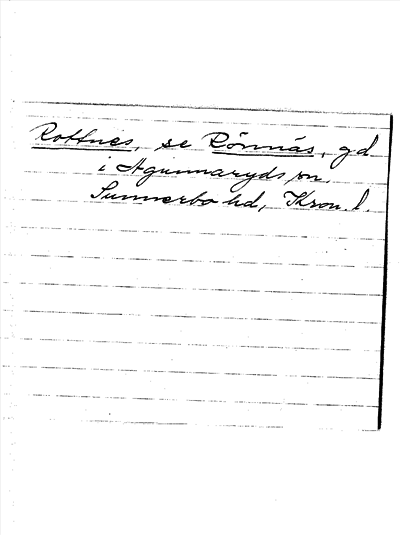 Rottnes, se Rönnäs, gd
i Agunnaryds sn,
Sunnerbo hd, Kron. l.